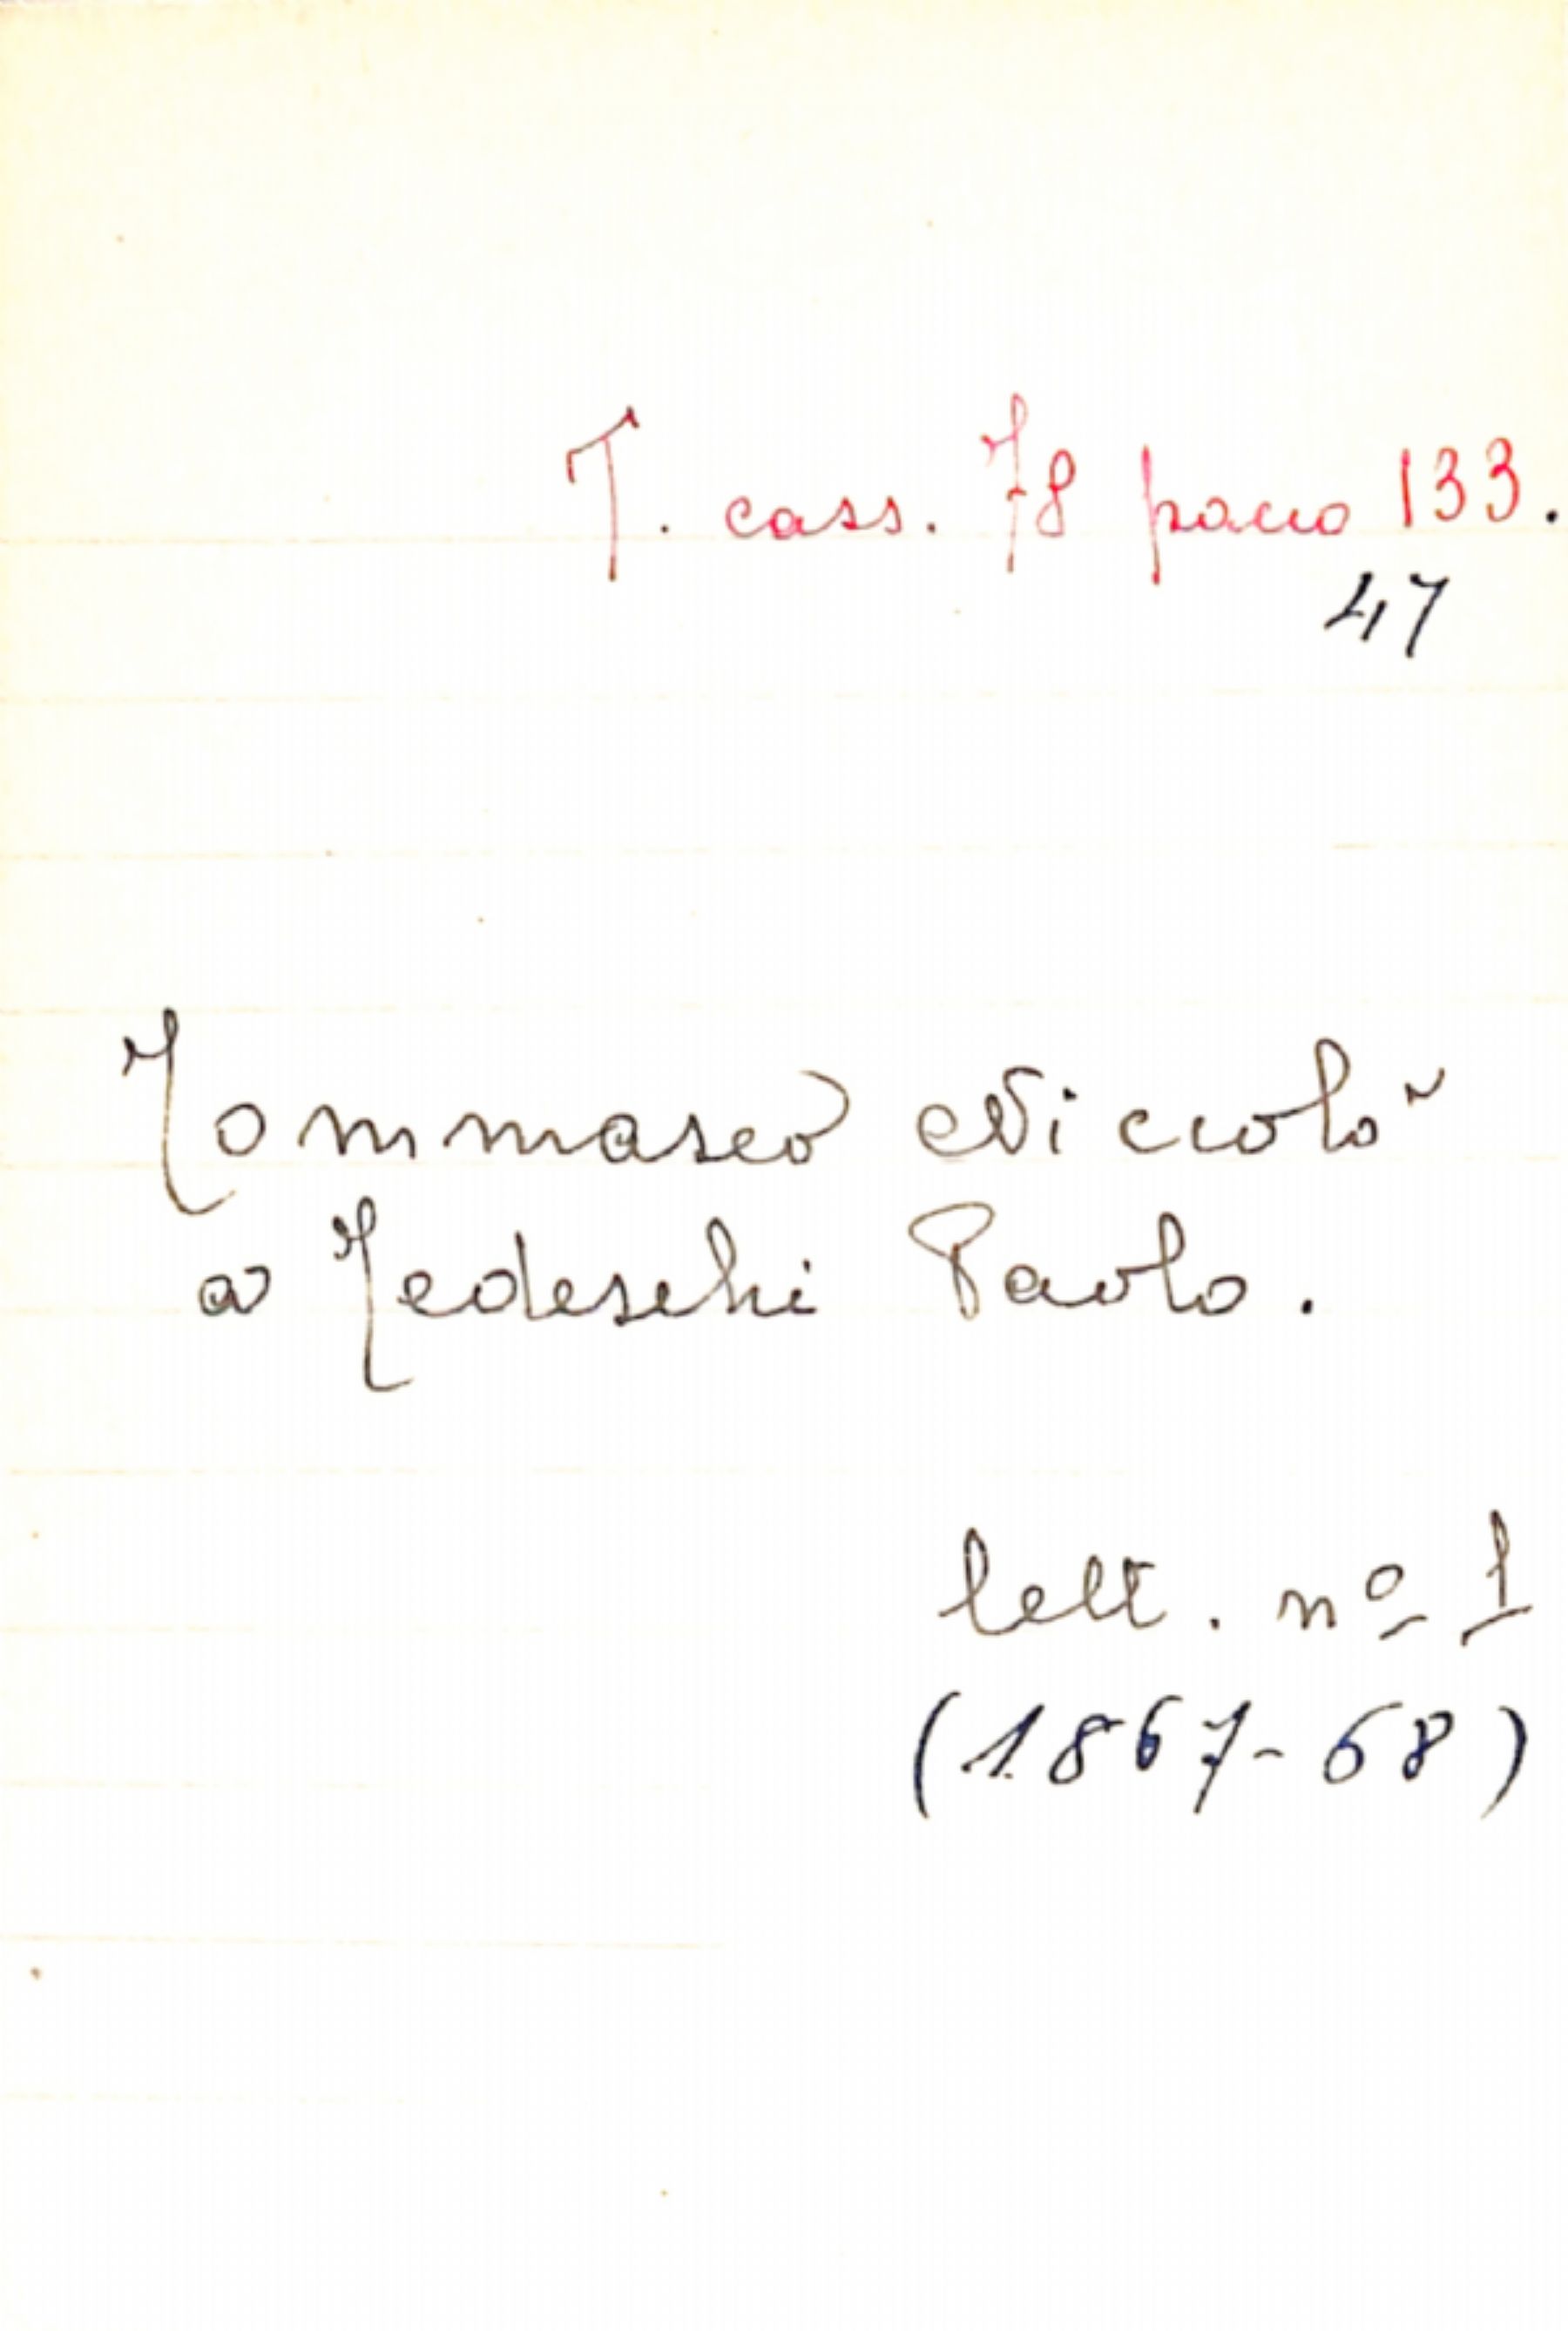 T. cass. 78 pacco 133.
47
Tommaseo Niccolò
a Tedeschi Paolo.
lett. nº 1
(1867-68)